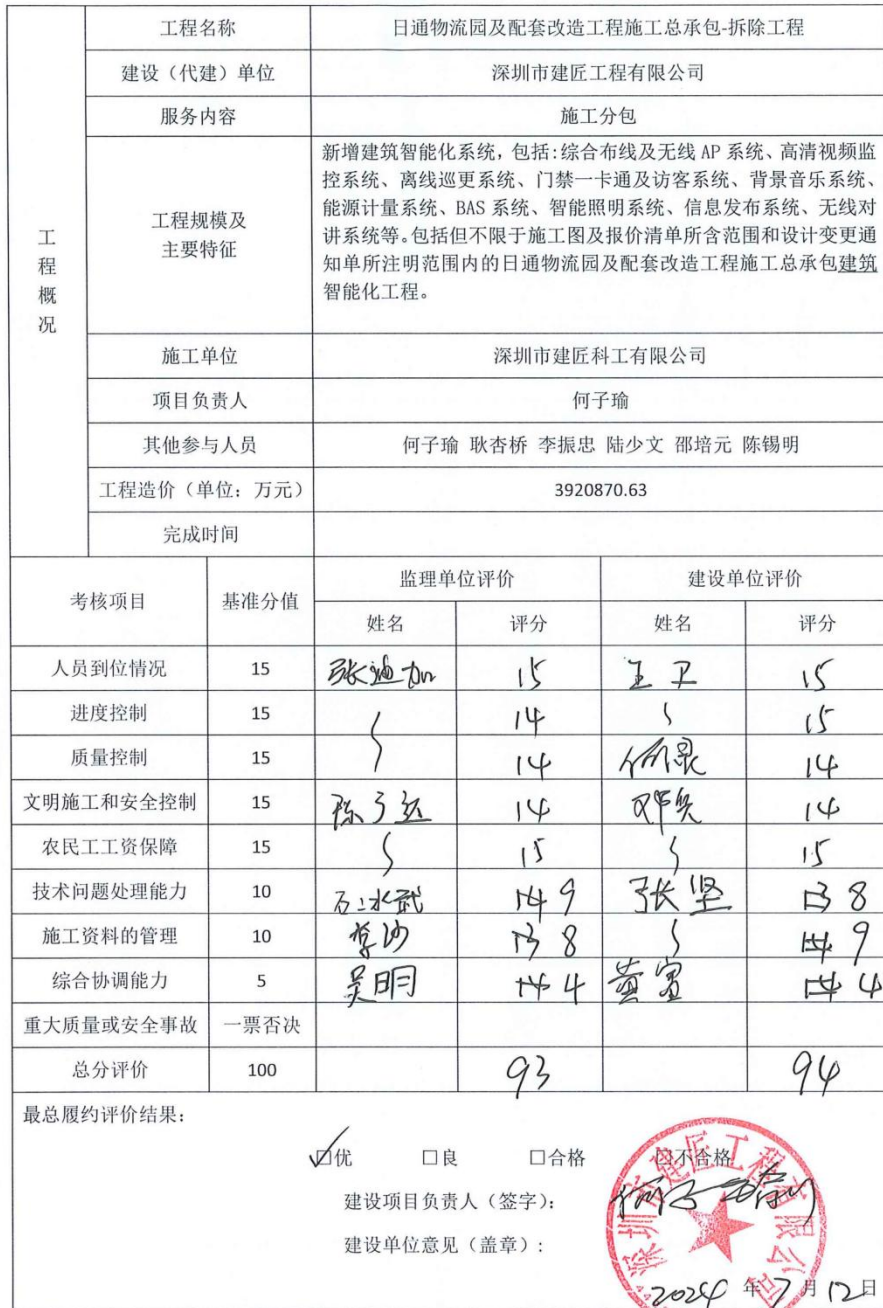 工程概况
工程名称 日通物流园及配套改造工程施工总承包-拆除工程
建设（代建）单位 深圳市建匠工程有限公司
服务内容 施工分包
工程规模及
主要特征
新增建筑智能化系统，包括:综合布线及无线 AP 系统、高清视频监
控系统、离线巡更系统、门禁一卡通及访客系统、背景音乐系统、
能源计量系统、BAS 系统、智能照明系统、信息发布系统、无线对
讲系统等。包括但不限于施工图及报价清单所含范围和设计变更通
知单所注明范围内的日通物流园及配套改造工程施工总承包建筑
智能化工程。
施工单位 深圳市建匠科工有限公司
项目负责人 何子瑜
其他参与人员 何子瑜 耿杏桥 李振忠 陆少文 邵培元 陈锡明
工程造价（单位：万元） 3920870.63
完成时间
考核项目 基准分值 监理单位评价 建设单位评价
姓名 评分 姓名 评分
人员到位情况 15 15 王卫 15
进度控制 15 14 15
质量控制 15 14 14
文明施工和安全控制 15 14 14
农民工工资保障 15 15 15
技术问题处理能力 10 14 9 张坚 13 8
施工资料的管理 10 13 8 14 9
综合协调能力 5 吴明 14 4 14 4
重大质量或安全事故 一票否决
总分评价 100 93 94
最总履约评价结果：
☑优 □良 □合格 □不合格
建设项目负责人（签字）：
建设单位意见（盖章）：
深圳市建匠工程有限公司
2024 年 7 月 12 日